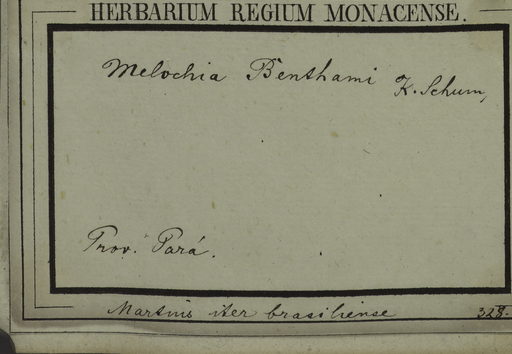 HERBARIUM REGIUM MONACENSE.
Melochia Benthami K. Schum,
Prov. Pará.
Martius iter brasiliense 328.